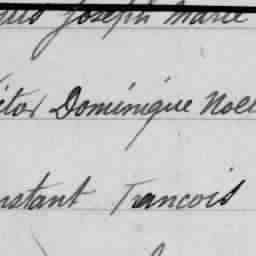 Joseph Marie
Dominique Noel
nstant Francois